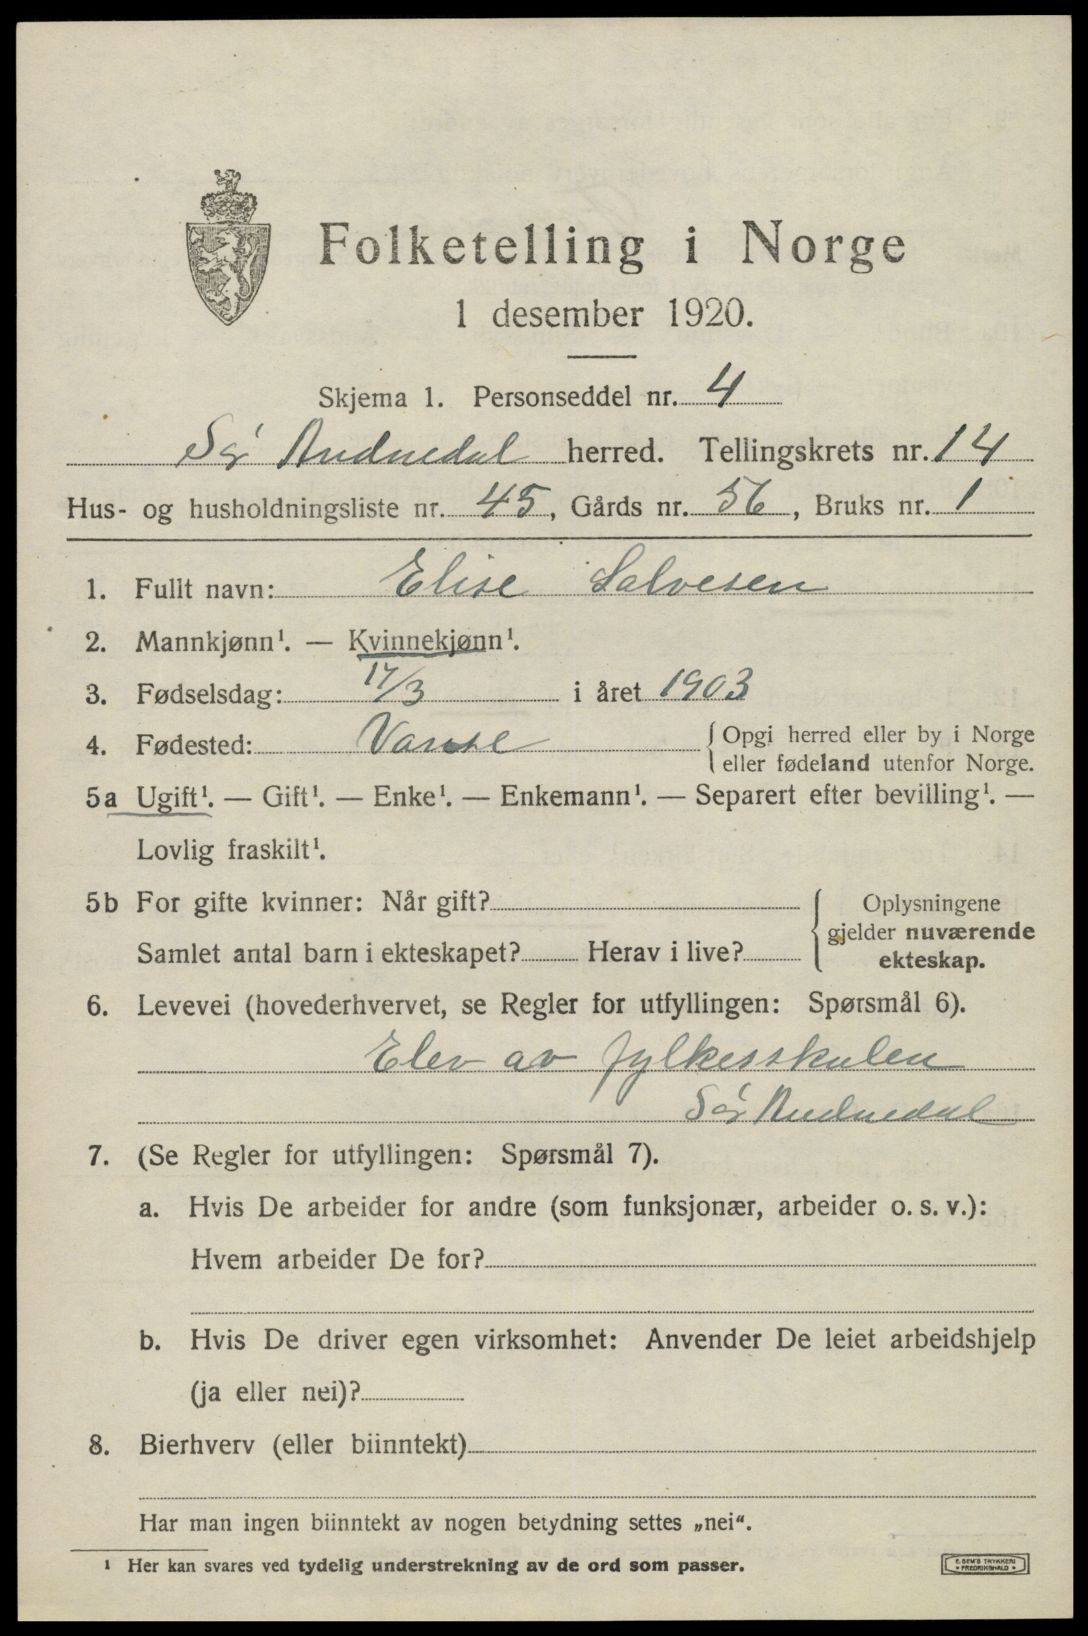 Folketelling i Norge
1 desember 1920.
Skjema 1. Personseddel nr. 4
Sør Audnedal herred. Tellingskrets nr. 14
Hus- og husholdningsliste nr. 45, Gårds nr. 56, Bruks nr. 1
1. Fullt navn: Elise Salvesen
2. Mannkjønn¹. — Kvinnekjønn¹.
3. Fødselsdag: 17/3 i året 1903
4. Fødested: Vanse { Opgi herred eller by i Norge
eller fødeland utenfor Norge.
5a Ugift¹. — Gift¹. — Enke¹. — Enkemann¹. — Separert efter bevilling¹. —
Lovlig fraskilt¹.
5b For gifte kvinner: Når gift? { Oplysningene
gjelder nuværende
Samlet antal barn i ekteskapet? Herav i live? ekteskap.
6. Levevei (hovederhvervet, se Regler for utfyllingen: Spørsmål 6).
Elev av fylkesskulen
Sør Audnedal
7. (Se Regler for utfyllingen: Spørsmål 7).
a. Hvis De arbeider for andre (som funksjonær, arbeider o. s. v.):
Hvem arbeider De for?
b. Hvis De driver egen virksomhet: Anvender De leiet arbeidshjelp
(ja eller nei)?
8. Bierhverv (eller biinntekt)
Har man ingen biinntekt av nogen betydning settes „nei“.
¹ Her kan svares ved tydelig understrekning av de ord som passer.
E. SEM'S TRYKKERI
• FREDRIKSHALD •